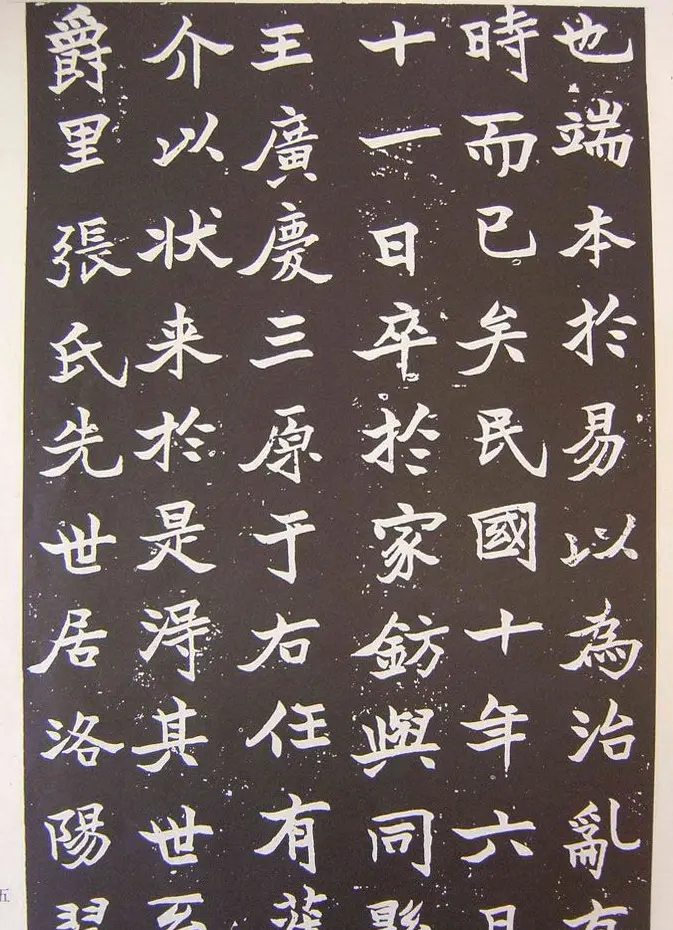 也端本於易以為治亂
時而已矣民國十年六
十一日卒於家鈁與同
王廣慶三原于右任有
介以状来於是淂其世
爵里張氏先世居洛陽
五